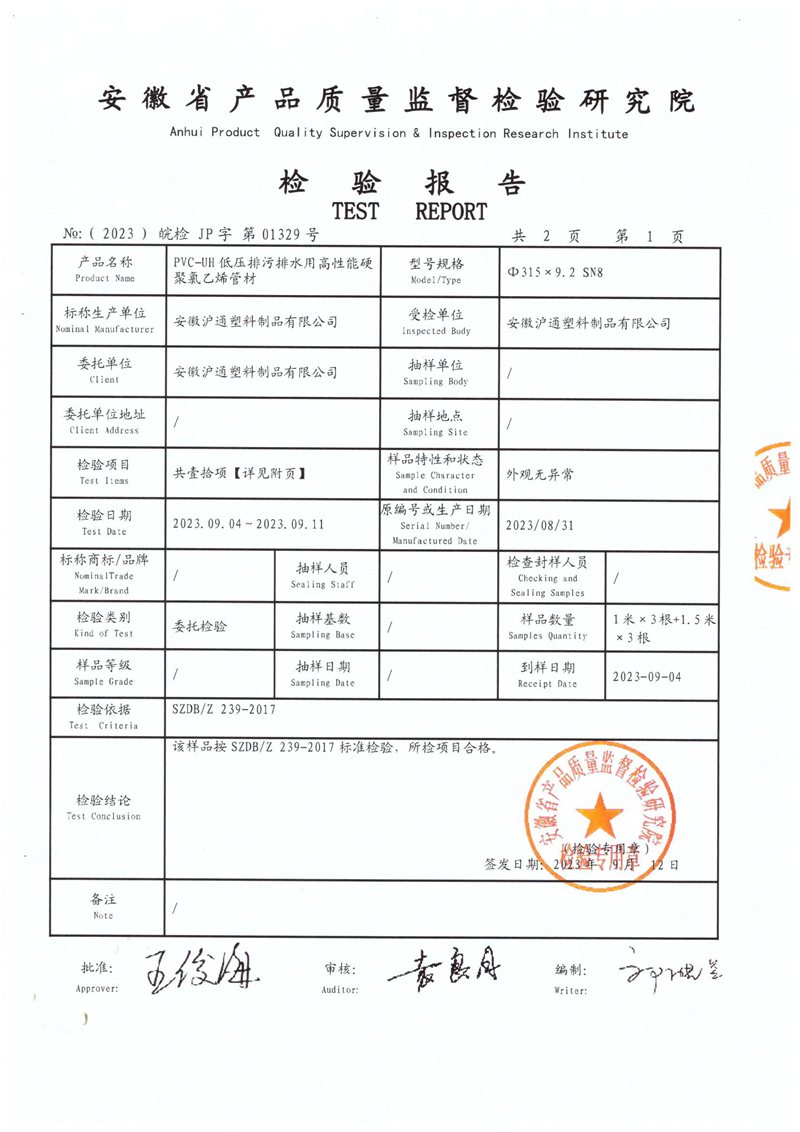 安徽省产品质量监督检验研究院
Anhui Product Quality Supervision & Inspection Research Institute
检验报告
TEST REPORT
№:(2023)皖检 JP字 第01329号
共 2 页 第 1 页
产品名称
Product Name
PVC-UH低压排污排水用高性能硬
聚氯乙烯管材
型号规格
Model/Type
Φ315×9.2 SN8
标称生产单位
Nominal Manufacturer
安徽沪通塑料制品有限公司
受检单位
Inspected Body
安徽沪通塑料制品有限公司
委托单位
Client
安徽沪通塑料制品有限公司
抽样单位
Sampling Body
/
委托单位地址
Client Address
/
抽样地点
Sampling Site
/
检验项目
Test Items
共壹拾项【详见附页】
样品特性和状态
Sample Character
and Condition
外观无异常
检验日期
Test Date
2023.09.04~2023.09.11
原编号或生产日期
Serial Number/
Manufactured Date
2023/08/31
标称商标/品牌
NominalTrade
Mark/Brand
/
抽样人员
Sealing Staff
/
检查封样人员
Checking and
Sealing Samples
/
检验类别
Kind of Test
委托检验
抽样基数
Sampling Base
/
样品数量
Samples Quantity
1米×3根+1.5米
×3根
样品等级
Sample Grade
/
抽样日期
Sampling Date
/
到样日期
Receipt Date
2023-09-04
检验依据
Test Criteria
SZDB/Z 239-2017
检验结论
Test Conclusion
该样品按SZDB/Z 239-2017标准检验，所检项目合格。
安徽省产品质量监督检验研究院
检验专用章
(检验专用章)
签发日期: 2023年 9月 12日
备注
Note
/
批准:
Approver:
王俊海
审核:
Auditor:
袁良月
编制:
Writer:
品质量
检验专